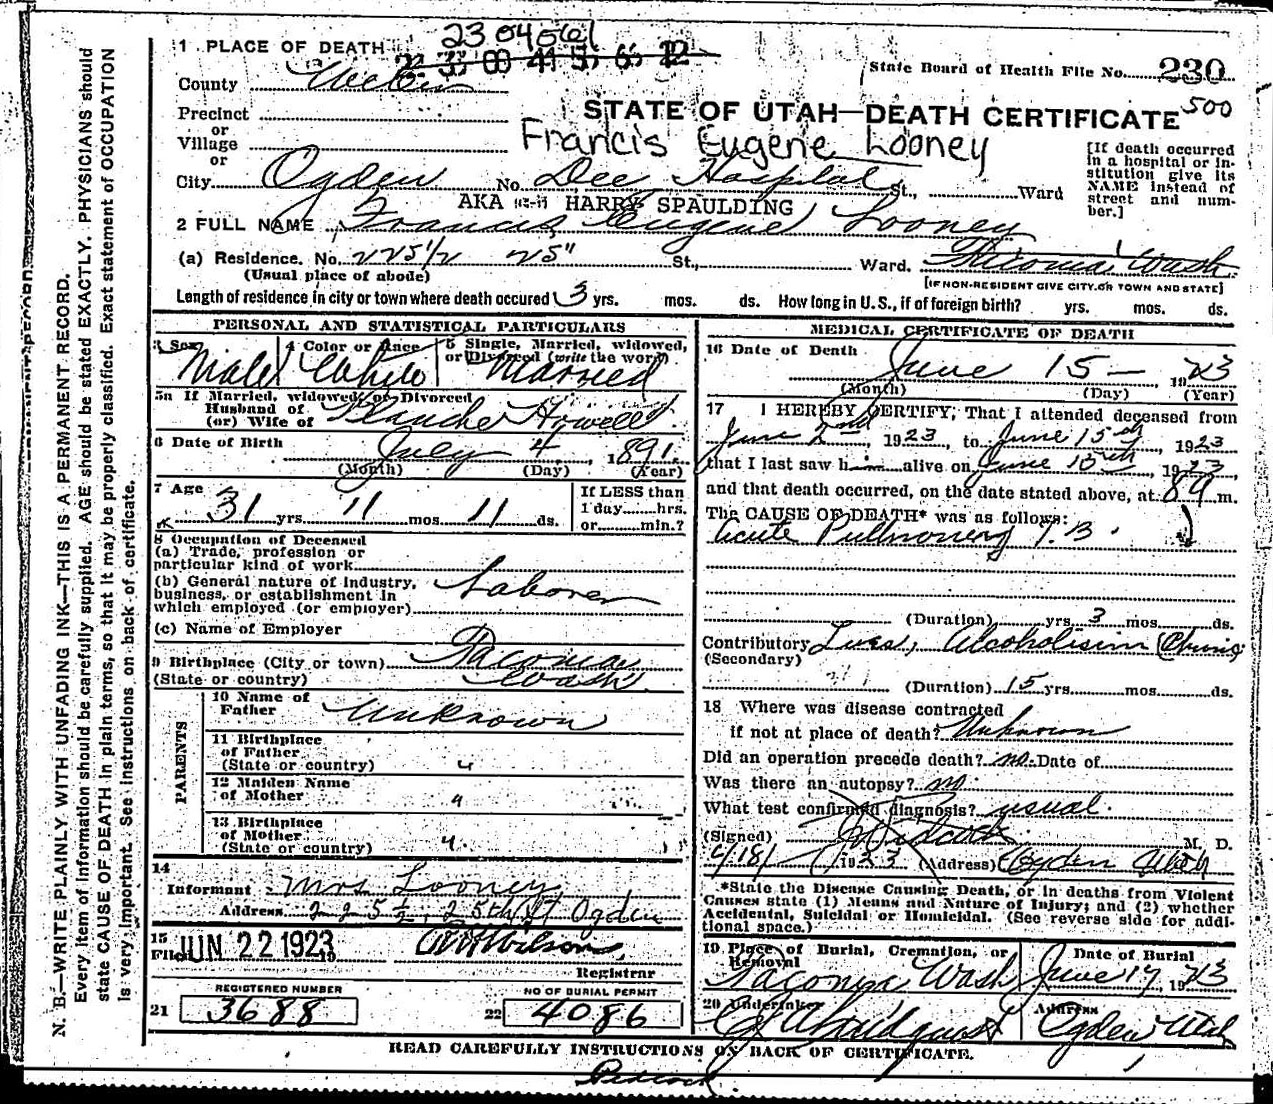 2304061
1 PLACE OF DEATH
State Board of Health File No. 230
County Weber
500
STATE OF UTAH—DEATH CERTIFICATE
Precinct
or
Village
or
Francis Eugene Looney
[If death occurred in a hospital or in-
stitution give its
NAME instead of
street and num-
ber.]
City Ogden No. Dee Hospital St., Ward
AKA HARRY SPAULDING
2 FULL NAME Francis Eugene Looney
(a) Residence. No. 225 1/2 25" St., Ward. Tacoma Wash
(Usual place of abode)
[IF NON-RESIDENT GIVE CITY OR TOWN AND STATE]
Length of residence in city or town where death occured 3 yrs. mos. ds. How long in U.S., if of foreign birth? yrs. mos. ds.
PERSONAL AND STATISTICAL PARTICULARS
3 Sex
Male
4 Color or Race
White
5 Single, Married, widowed,
or Divorced (write the word)
Married
5a If Married, widowed, or Divorced
Husband of
(or) Wife of Blanche Howell
6 Date of Birth July 4, 1891.
(Month) (Day) (Year)
7 Age
31 yrs. 11 mos. 11 ds.
If LESS than
1 day......hrs.
or......min.?
8 Occupation of Deceased
(a) Trade, profession or
particular kind of work
(b) General nature of Industry,
business, or establishment in
which employed (or employer)
Laborer
(c) Name of Employer
9 Birthplace (City or town) Tacoma
(State or country) Wash.
PARENTS
10 Name of
Father Unknown
11 Birthplace
of Father
(State or country) "
12 Maiden Name
of Mother "
13 Birthplace
of Mother
(State or country) "
14
Informant Mrs Looney
Address 225 1/2, 25th St Ogden
15
Filed JUN 22 1923
Registrar
REGISTERED NUMBER
21 3688
NO OF BURIAL PERMIT
22 4086
MEDICAL CERTIFICATE OF DEATH
16 Date of Death June 15 — 1923
(Month) (Day) (Year)
17 I HEREBY CERTIFY, That I attended deceased from
June 2nd, 1923, to June 15th, 1923
that I last saw him alive on June 15th, 1923
and that death occurred, on the date stated above, at 8 9 m.
The CAUSE OF DEATH* was as follows:
Acute Pulmonary T.B.
(Duration) yrs. 3 mos. ds.
Contributory Lues, Alcoholisim (Chronic
(Secondary)
(Duration) 15 yrs. mos. ds.
18 Where was disease contracted
if not at place of death? Unknown
Did an operation precede death? no. Date of
Was there an autopsy? no.
What test confirmed diagnosis? usual.
(Signed) M. D.
1923 (Address) Ogden Utah
*State the Disease Causing Death, or in deaths from Violent
Causes state (1) Means and Nature of Injury; and (2) whether
Accidental, Suicidal or Homicidal. (See reverse side for addi-
tional space.)
19 Place of Burial, Cremation, or
Removal
Tacoma Wash
Date of Burial
June 17, 1923
20 Undertaker
Address
Ogden Utah
READ CAREFULLY INSTRUCTIONS ON BACK OF CERTIFICATE.
N. B.—WRITE PLAINLY WITH UNFADING INK—THIS IS A PERMANENT RECORD.
Every item of information should be carefully supplied. AGE should be stated EXACTLY. PHYSICIANS should
state CAUSE OF DEATH in plain terms, so that it may be properly classified. Exact statement of OCCUPATION
is very important. See instructions on back of certificate.